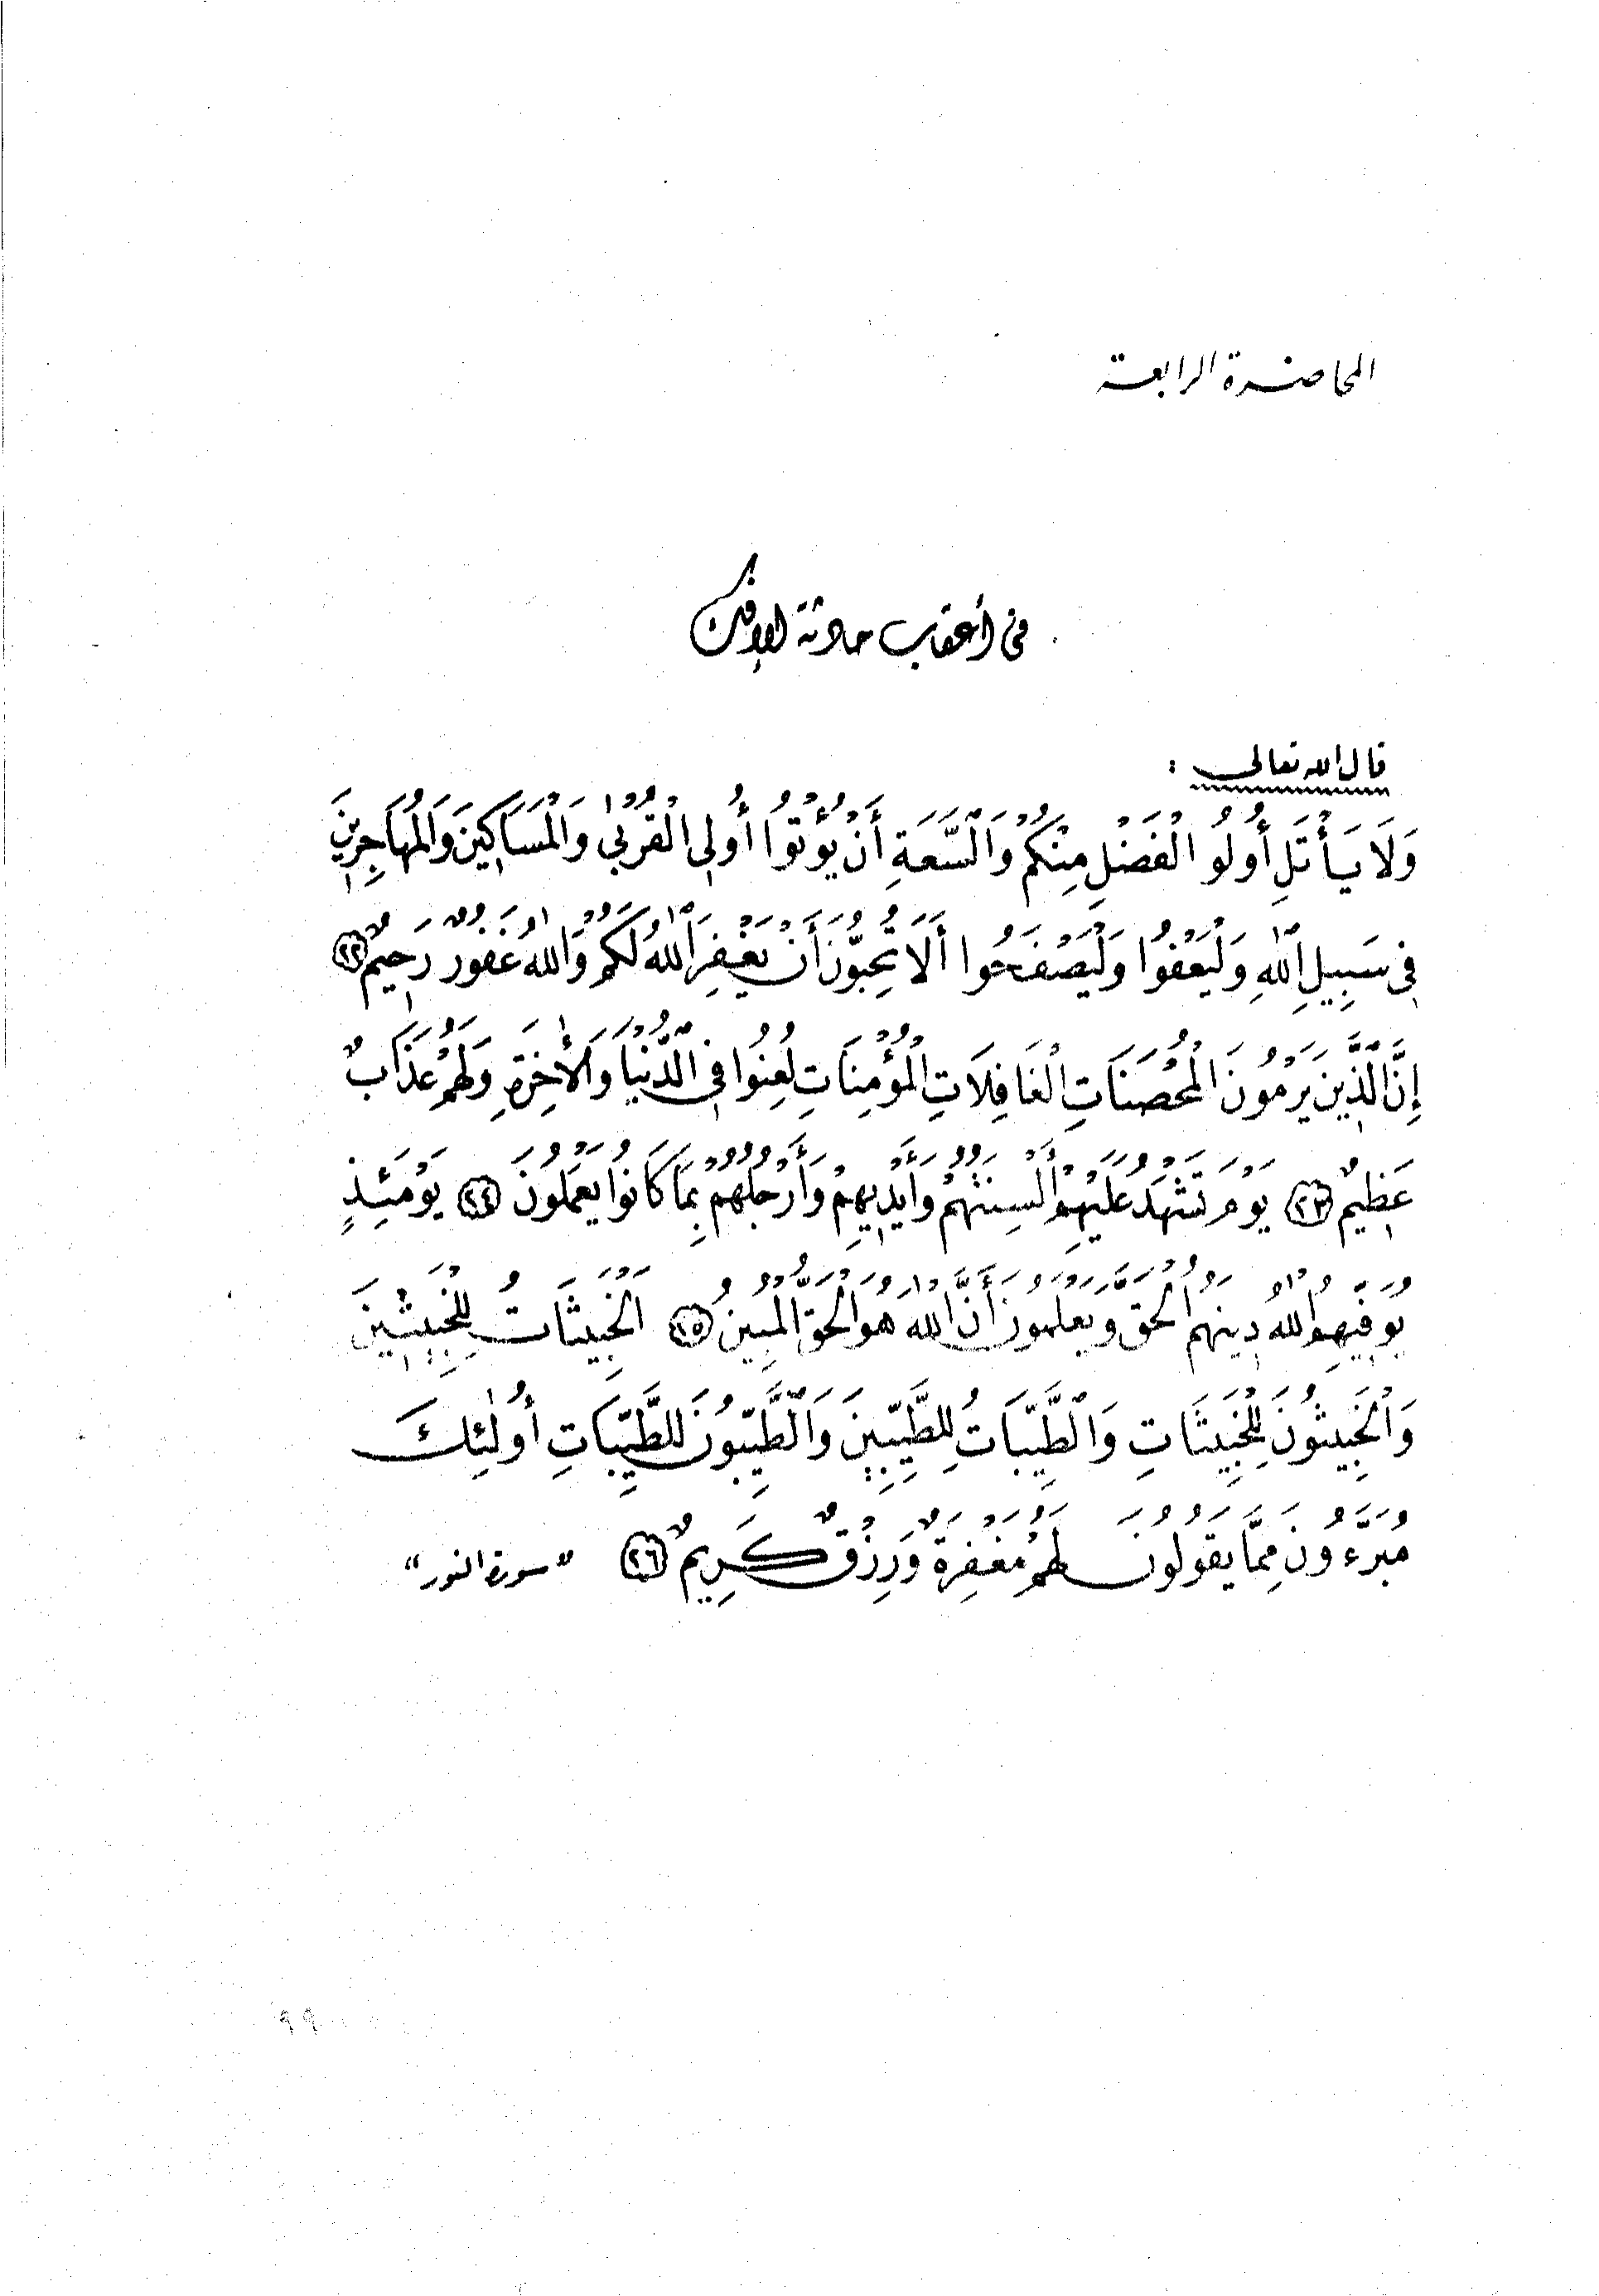 المحاضرة الرابعة
فى أعقاب حادثة الإفك
قال الله تعالى :
وَلَا يَأْتَلِ أُولُو الْفَضْلِ مِنْكُمْ وَالسَّعَةِ أَنْ يُؤْتُوا أُولِى الْقُرْبَىٰ وَالْمَسَاكِينَ وَالْمُهَاجِرِينَ
فِى سَبِيلِ اللَّهِ وَلْيَعْفُوا وَلْيَصْفَحُوا أَلَا تُحِبُّونَ أَنْ يَغْفِرَ اللَّهُ لَكُمْ وَاللَّهُ غَفُورٌ رَحِيمٌ (٢٢)
إِنَّ الَّذِينَ يَرْمُونَ الْمُحْصَنَاتِ الْغَافِلَاتِ الْمُؤْمِنَاتِ لُعِنُوا فِى الدُّنْيَا وَالْأَخِرَةِ وَلَهُمْ عَذَابٌ
عَظِيمٌ (٢٣) يَوْمَ تَشْهَدُ عَلَيْهِمْ أَلْسِنَتُهُمْ وَأَيْدِيهِمْ وَأَرْجُلُهُمْ بِمَا كَانُوا يَعْمَلُونَ (٢٤) يَوْمَئِذٍ
يُوَفِّيهِمُ اللَّهُ دِينَهُمُ الْحَقَّ وَيَعْلَمُونَ أَنَّ اللَّهَ هُوَ الْحَقُّ الْمُبِينُ (٢٥) الْخَبِيثَاتُ لِلْخَبِيثِينَ
وَالْخَبِيثُونَ لِلْخَبِيثَاتِ وَالطَّيِّبَاتُ لِلطَّيِّبِينَ وَالطَّيِّبُونَ لِلطَّيِّبَاتِ أُولَٰئِكَ
مُبَرَّءُونَ مِمَّا يَقُولُونَ لَهُمْ مَغْفِرَةٌ وَرِزْقٌ كَرِيمٌ (٢٦) "سورة النور"